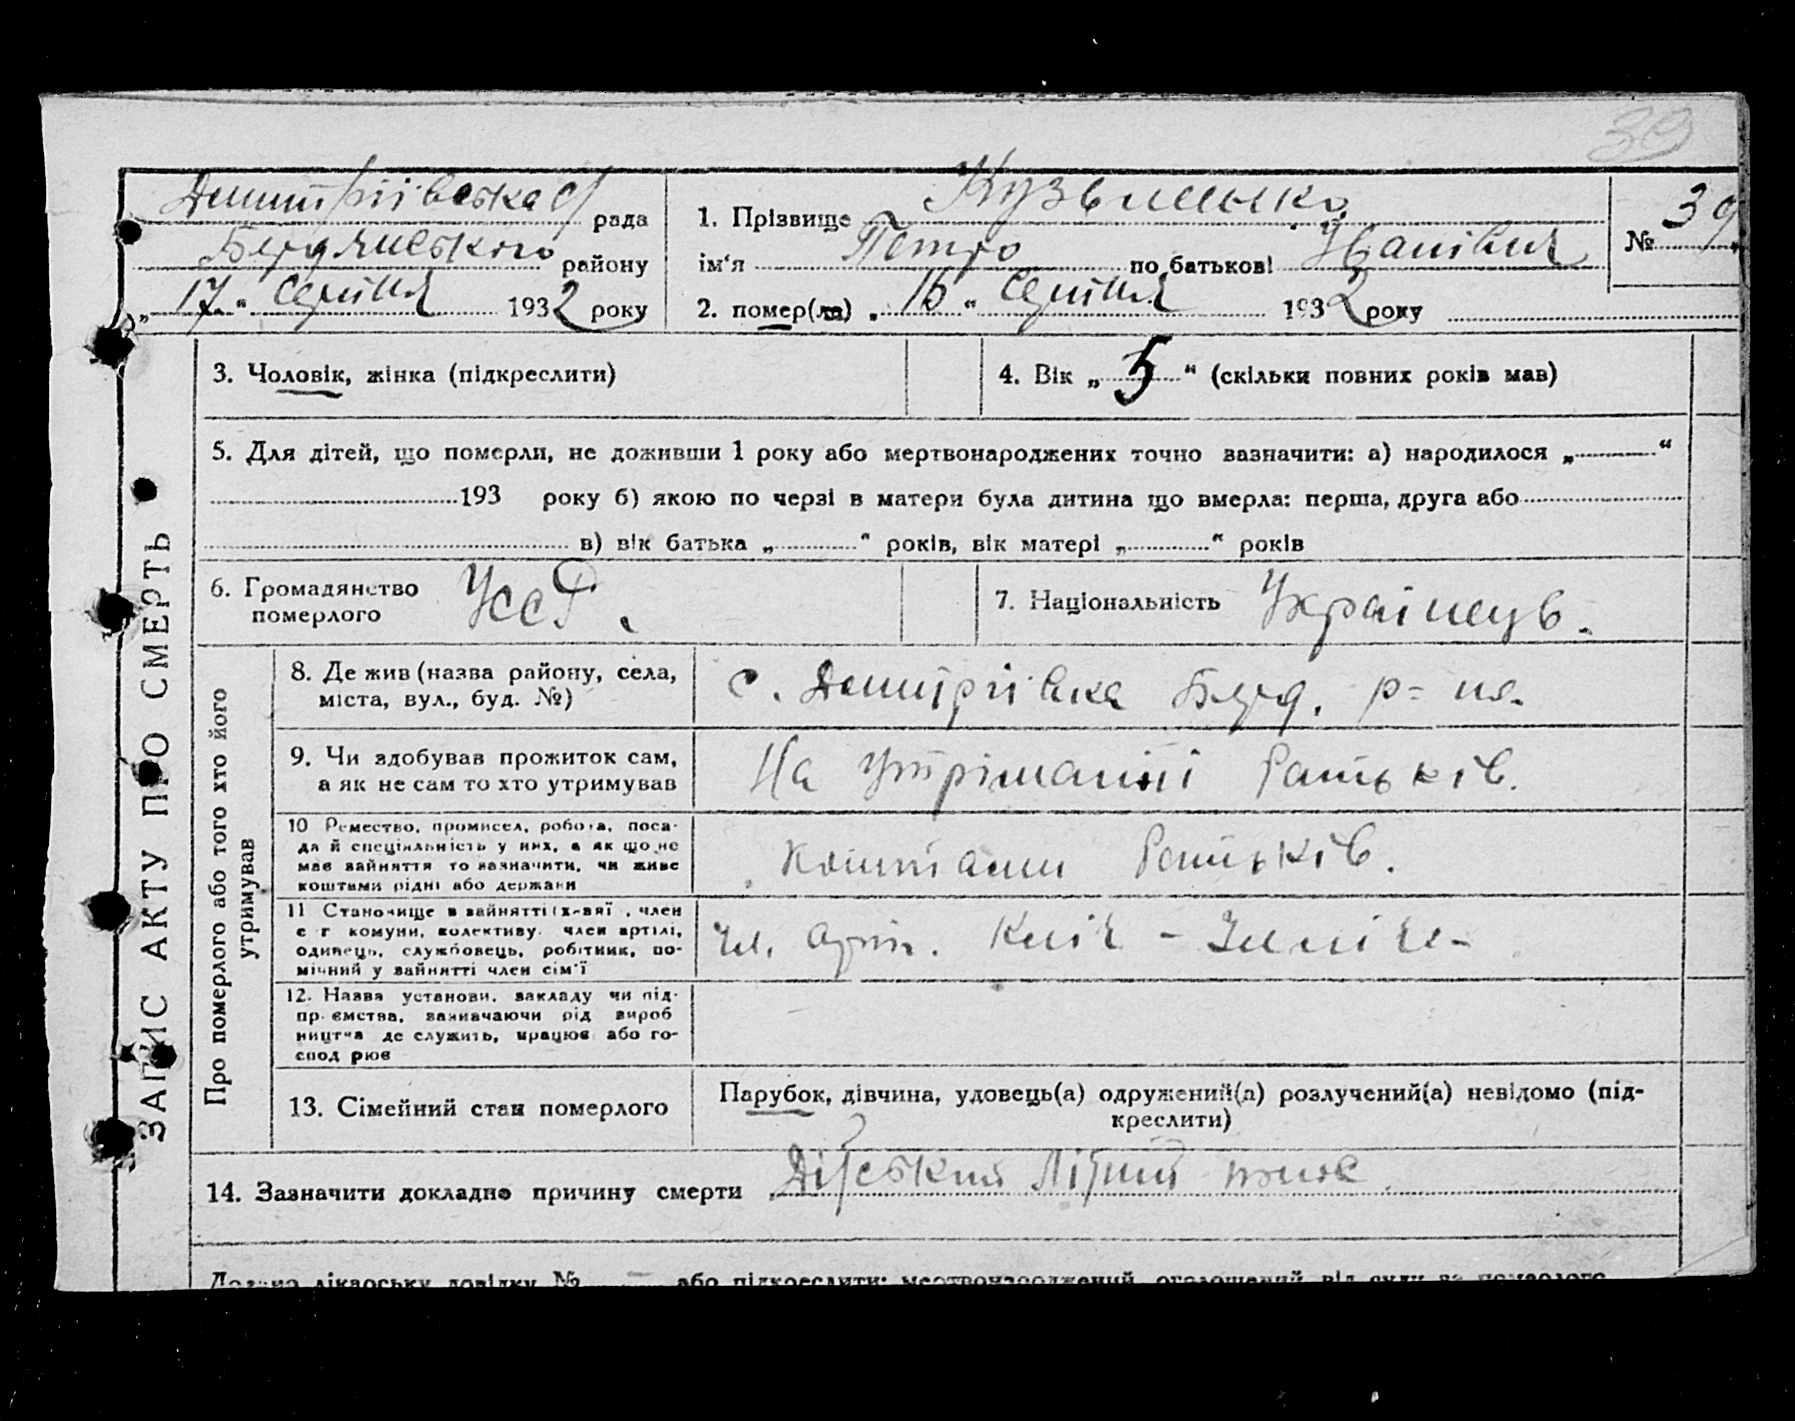 39
Дмитріівська с/ рада
Бердянського району
„ 17 “ серпня 1932 року
1. Прізвище Кузьменко
ім‘я Петро по батькові Іванівич
№ 39
2. помер(ла) „ 16 “ серпня 1932 року
3. Чоловік, жінка (підкреслити)
4. Вік „ 5 “ (скільки повних років мав)
5. Для дітей, що померли, не доживши 1 року або мертвонароджених точно зазначити: а) народилося „ “
193 року б) якою по черзі в матери була дитина що вмерла: перша, друга або
в) вік батька „ “ років, вік матері „ “ років
6. Громадянство
померлого
УССР.
7. Національність Українець.
ЗАПИС АКТУ ПРО СМЕРТЬ
Про померлого або того хто його
утримував
8. Де жив (назва району, села,
міста, вул., буд. №)
с. Дмитрівка Берд. р=на.
9. Чи здобував прожиток сам,
а як не сам то хто утримував
На утріманні батьків.
10 Ремество, промисел, робота, поса-
да й спеціяльність у них, а як що не
має зайняття то зазначити, чи живе
коштами рідні або держави
коштами батьків.
11 Становище в зайнятті , член
с г комуни, колективу. член артілі,
одинець, службовець, робітник, по-
мічний у зайнятті член сім‘ї
чл. арт. Ілліча-
12. Назва установи, закладу чи під-
пр ємства, зазначаючи рід вироб
ництва де служить, працює або го-
спод рює
13. Сімейний стан померлого
Парубок, дівчина, удовець(а) одружений(а) розлучений(а) невідомо (під-
креслити)
14. Зазначити докладно причину смерти Дітський літний понос
№ або підкреслити: мертвонароджений,